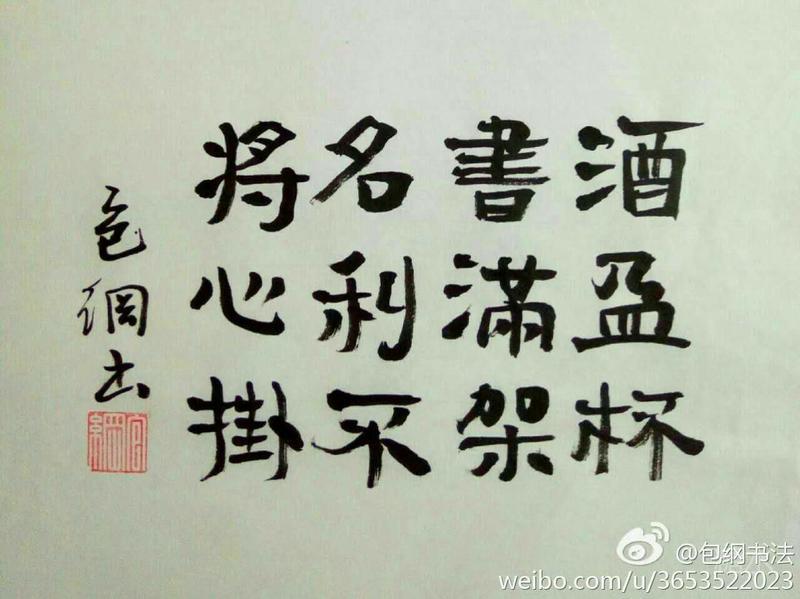 酒盈杯
書滿架
名利不
將心掛
包綱书
包綱
@包纲书法
weibo.com/u/3653522023